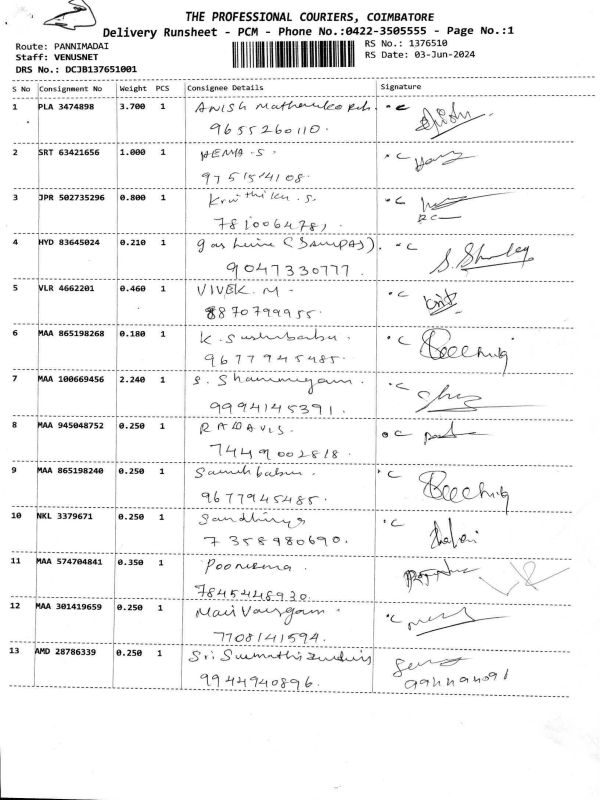 THE PROFESSIONAL COURIERS, COIMBATORE
Delivery Runsheet - PCM - Phone No.:0422-3505555 - Page No.:1
Route: PANNIMADAI
RS No.: 1376510
Staff: VENUSNET
RS Date: 03-Jun-2024
DRS No.: DCJB137651001
S No Consignment No Weight PCS Consignee Details Signature
1 PLA 3474898 3.700 1 ANISH
9655260110.
2 SRT 63421656 1.000 1 HEMA.S.
9751514108.
3 JPR 502735296 0.800 1 Krithika.S.
7810064781
4 HYD 83645024 0.210 1
9047330777.
5 VLR 4662201 0.460 1 VIVEK.M-
8870799955.
6 MAA 865198268 0.180 1 K.
9677945485.
7 MAA 100669456 2.240 1 S. Shanmugam.
9994145391.
8 MAA 945048752 0.250 1
7449002818.
9 MAA 865198240 0.250 1
9677945485.
10 NKL 3379671 0.250 1 Sandhiya
7358980690.
11 MAA 574704841 0.350 1 Poornima
7845448930.
12 MAA 301419659 0.250 1
7708141594.
13 AMD 28786339 0.250 1 Sri
9944940896.